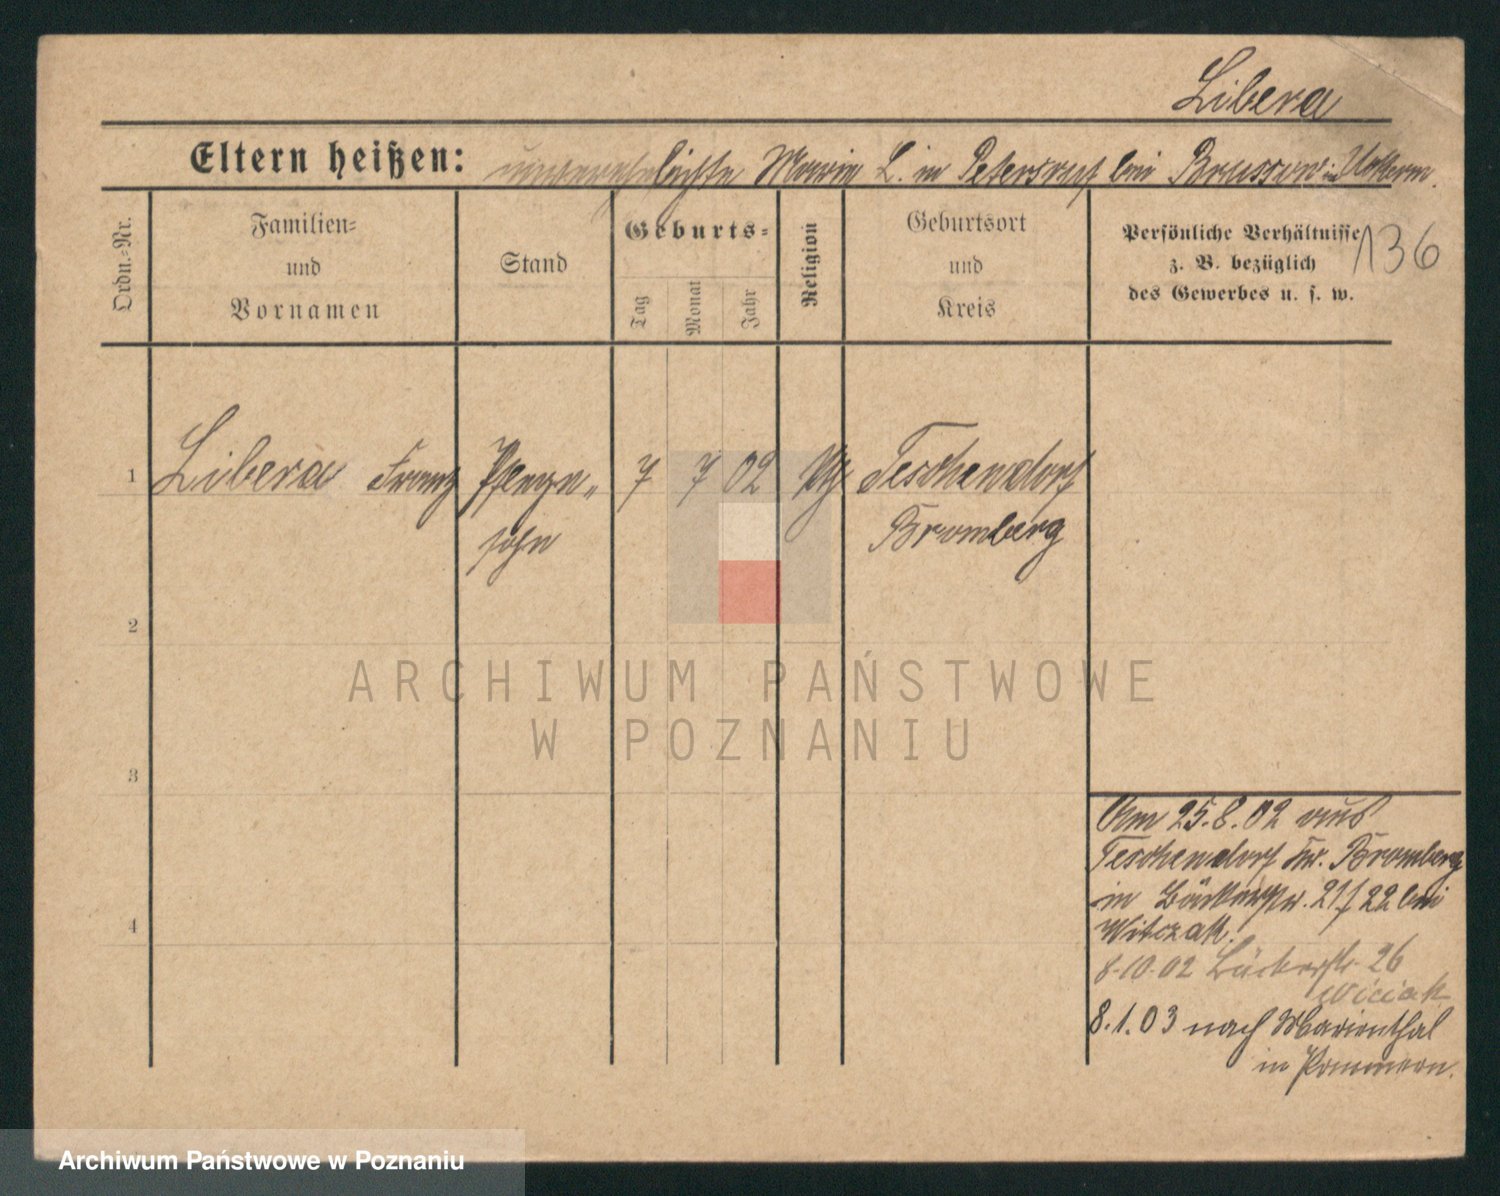 Libera
Eltern heißen: unverehelichte Marie L. in Petersruh bei Brüssow in Uckerm.
136
Ordn.-Nr.
Familien-
und
Vornamen
Stand
Geburts-
Tag
Monat
Jahr
Religion
Geburtsort
und
Kreis
Persönliche Verhältnisse
z. B. bezüglich
des Gewerbes u. s. w.
1 Libera Franz Pflege- 7 7 02 Teschendorf
sohn Bromberg
2
3
4
Am 25.8.02 aus
Teschendorf Kr. Bromberg
in Bäckerstr. 21/22 bei
Witczak.
8.10.02 Bäckerstr. 26
Wiciak
8.1.03 nach Marienthal
in Pommern.
ARCHIWUM PAŃSTWOWE
W POZNANIU
Archiwum Państwowe w Poznaniu